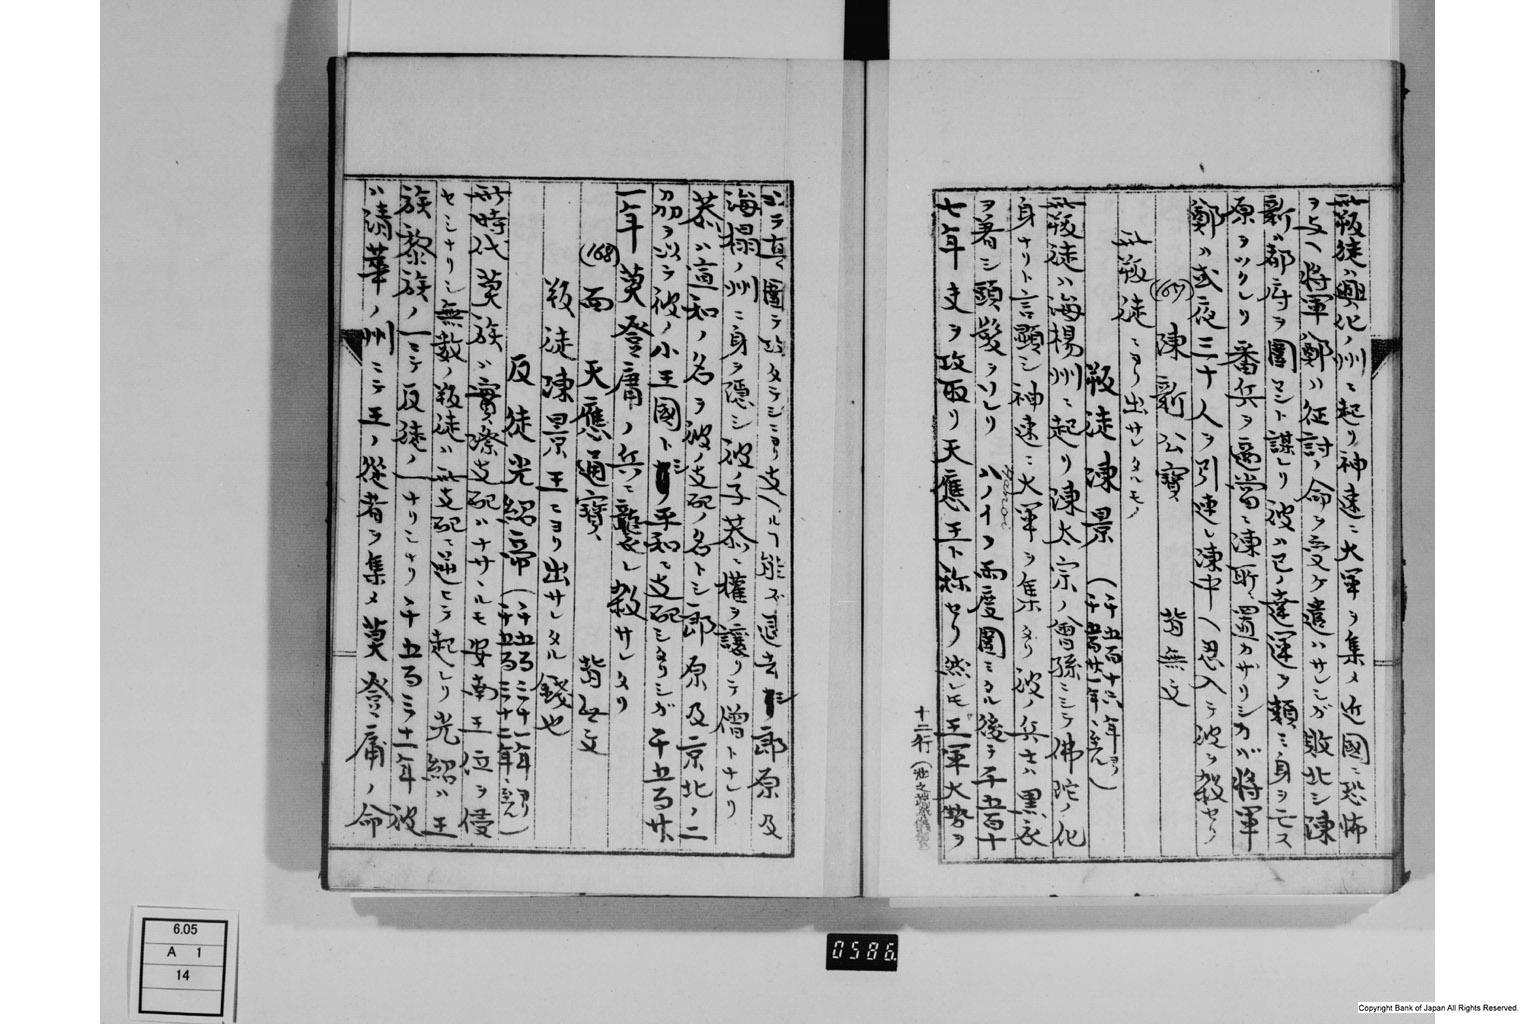 此叛徒ハ興化ノ州ニ起リ神速ニ大軍ヲ集メ近國ニ恐怖
ヲ与ヘ将軍鄭ハ征討ノ命ヲ受ケ遣ハサレシガ敗北シ陳
新ハ都府ヲ圍マント謀レリ彼ハ己ノ運ヲ頼ミ身ヲ亡ス
原ヲツクレリ番兵ヲ適當ニ陳所ニ置カザリシカガ将軍
鄭ハ或夜三十人ヲ引連レ陳中ヘ忍入テ彼ヲ殺セリ
(167) 陳新公寳 背無文
此叛徒ニヨリ出サレタルモノ
叛徒陳景 (千五百十六年ヨリ千五百廿一年ニ至ル)
此叛徒ハ海楊州ニ起リ陳太宗ノ曾孫ニシテ佛陀ノ化
身ナリト言顕シ神速ニ大軍ヲ集メタリ彼ノ兵士ハ黒衣
ヲ着シ頭髪ヲソレリ ハノイヲ両度圍ミタル後チ千五百十
Hanoi
七年ニ攻取リ天應王ト称セリ然レモ王軍大勢ヲ
十二行
以テ直ニ圍テ攻タテシニヨリ支ヘルヿ能ズ退去シ郎原及
海楊ノ州ニ身ヲ隠シ彼ノ子恭ニ權ヲ讓リテ僧トナレリ
恭ハ宣和ノ名ヲ彼ノ支配ノ名トシ郎原及京北ノ二
州ヲ以テ彼ノ小王國トシ平和ニ支配シタリシガ千五百廿
一年莫登庸ノ兵ニ襲ヒレ殺サレタリ
(168) 面 天應通寳 背無文
叛徒陳景王ニヨリ出サレタル錢也
反徒光紹帝 (千五百三十一年ヨリ千五百三十二年ニ至ル)
此時代莫族ハ實際支配ハナサヽルモ安南王位ヲ侵
セシナリシ無数ノ叛徒ハ此支配ニ逆ヒテ起レリ光紹ハ王
族黎族ノ一ニテ反徒ノ一ナリシナリ千五百三十一年彼
ハ清華ノ州ニテ王ノ從者ヲ集メ莫登庸ノ命
6.05
A 1
14
0586
Copyright Bank of Japan All Rights Reserved.